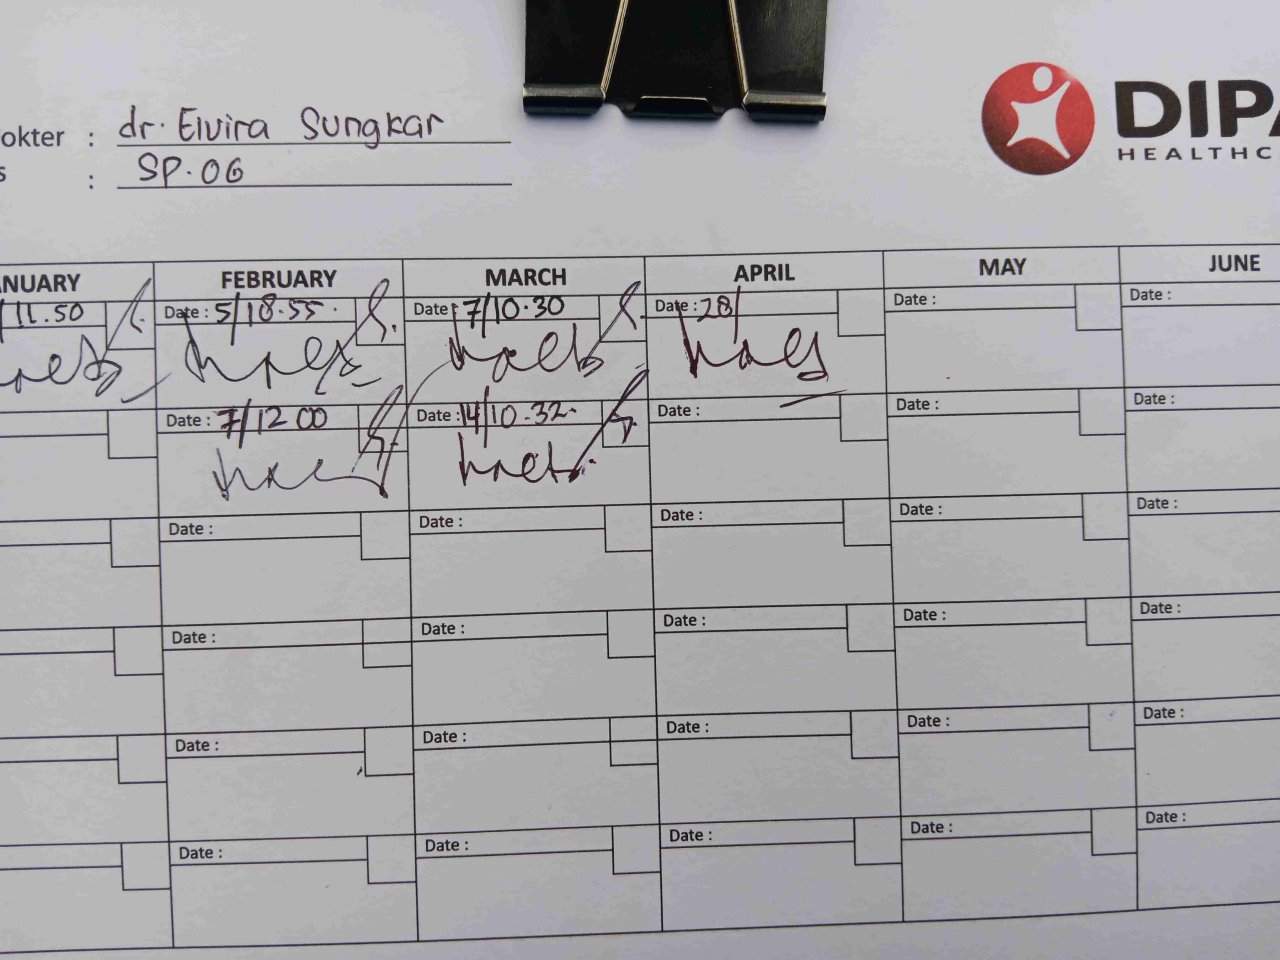 okter : dr. Elvira Sungkar
s : SP.OG
DIPA
HEALTHC
NUARY FEBRUARY MARCH APRIL MAY JUNE
/11.50 Date : 5/18.55. Date : 7/10.30 Date : 28/ Date : Date :
Date : 7/12 00 Date : 14/10.32. Date : Date : Date :
Date : Date : Date : Date : Date :
Date : Date : Date : Date : Date :
Date : Date : Date : Date : Date :
Date : Date : Date : Date : Date :